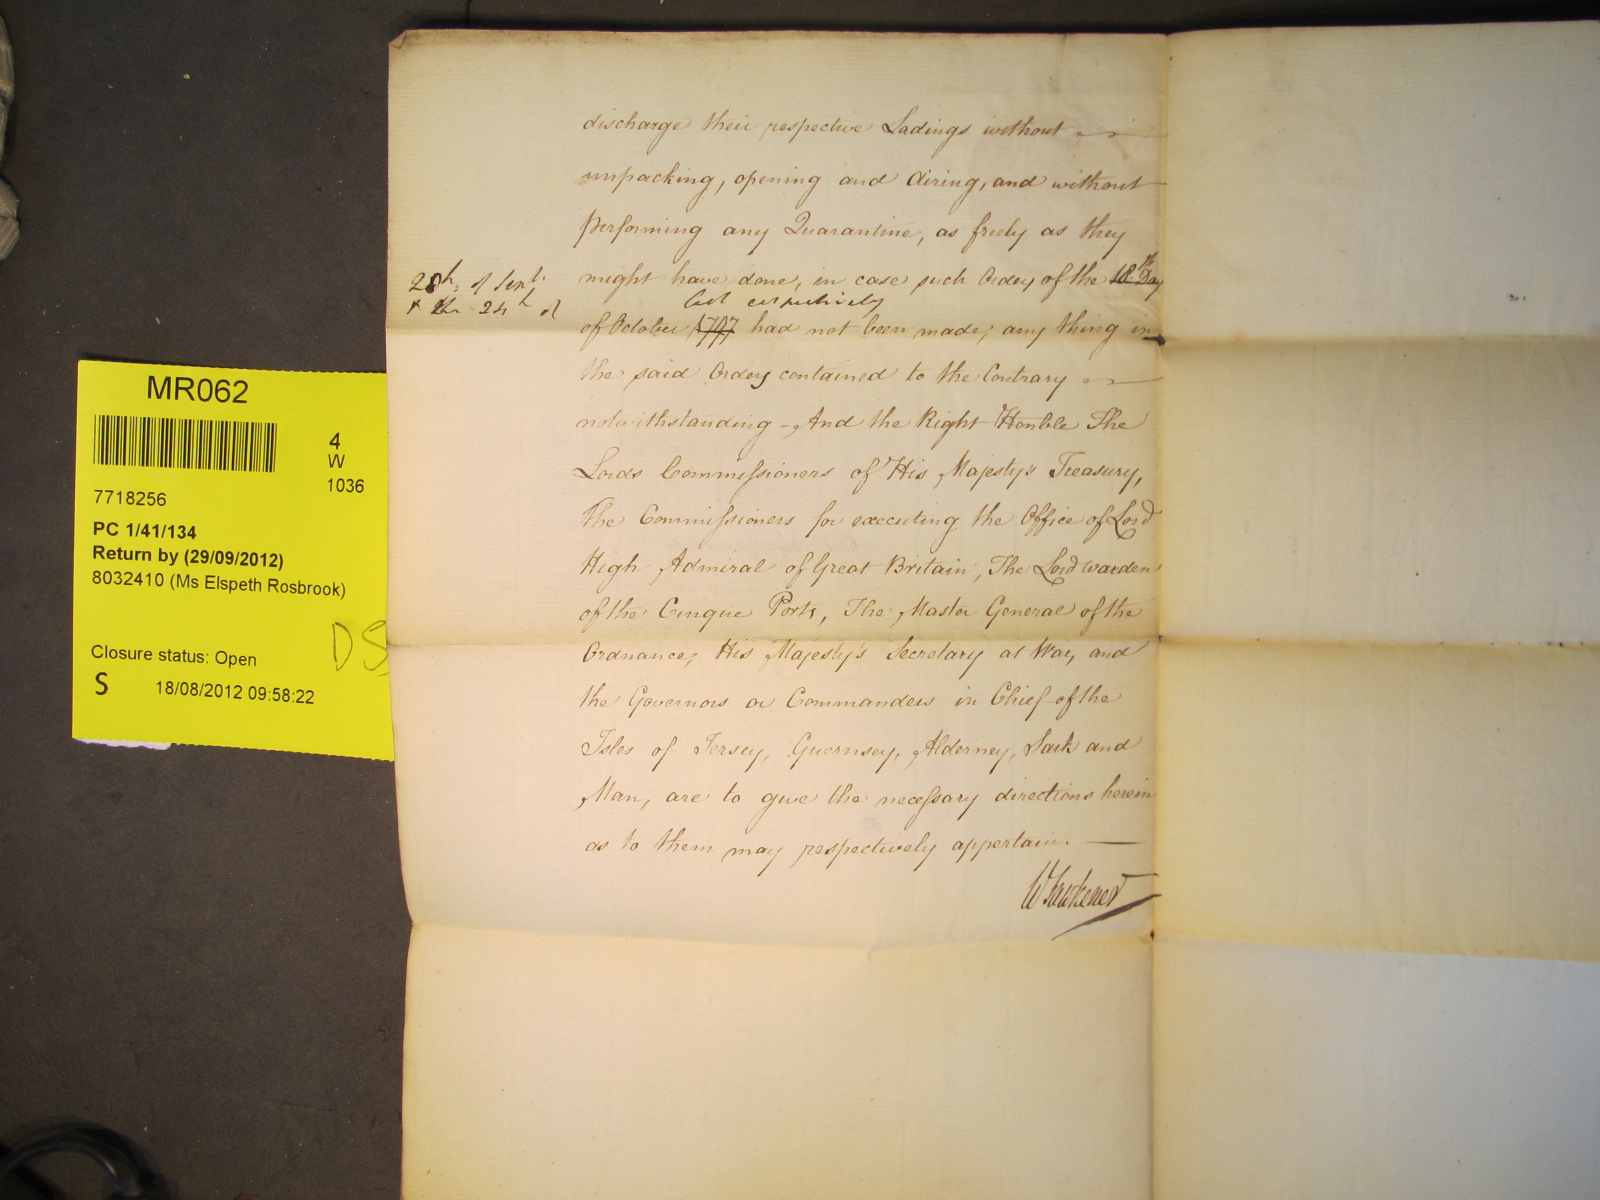 MR062
4
W
1036
7718256
PC 1/41/134
Return by (29/09/2012)
8032410 (Ms Elspeth Rosbrook)
DS
Closure status: Open
S 18/08/2012 09:58:22
discharge their respective Ladings without
unpacking, opening and Airing, and without
performing any Quarantine, as freely as they
28th of Sept.
& the 24th of
might have done, in case such Orders of the 18th Day
last respectively
of October 1797 had not been made; any thing in
the said Orders contained to the Contrary
notwithstanding - And the Right Honble The
Lords Commissioners of His Majesty's Treasury,
The Commissioners for executing the Office of Lord
High Admiral of Great Britain, The Lord Warden
of the Cinque Ports, The Master General of the
Ordnance, His Majesty's Secretary at War, and
the Governors or Commanders in Chief of the
Isles of Jersey, Guernsey, Alderney, Sark and
Man, are to give the necessary directions herein
as to them may respectively appertain.
W Fawkener